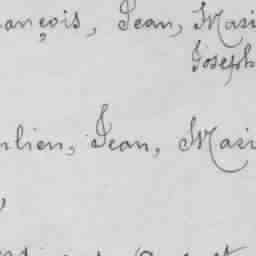 ançois, Jean, Mari
Joseph
lien, Jean, Mari